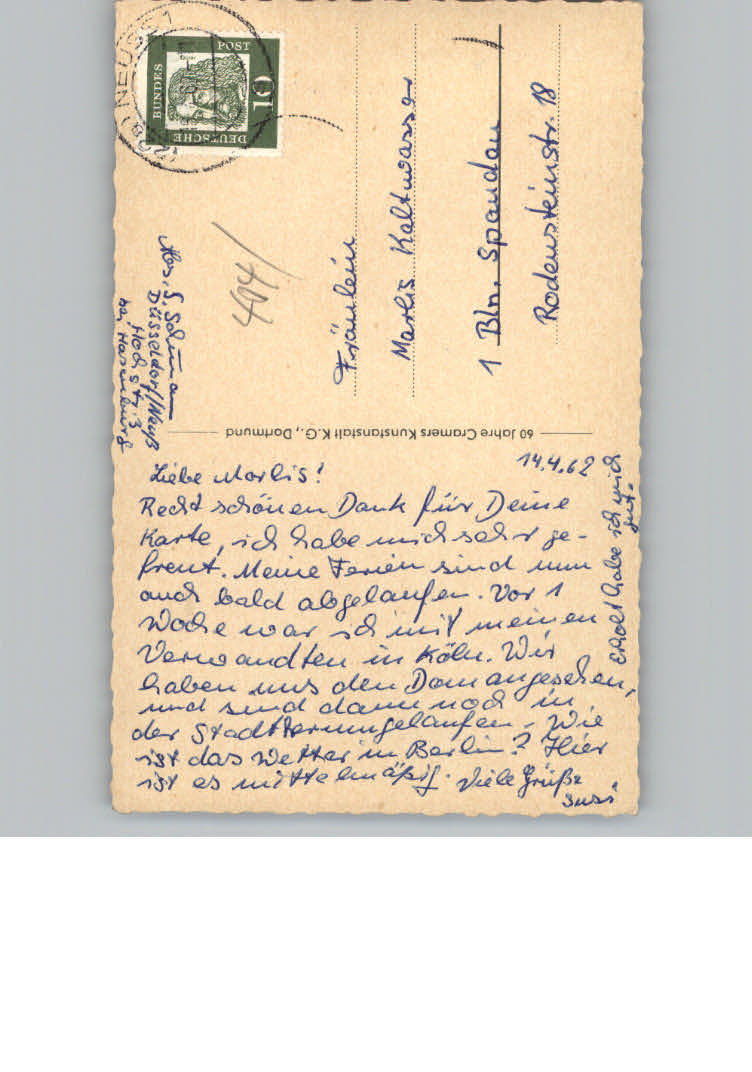 14.4.62
Liebe Marlis!
Recht schönen Dank für Deine
Karte, ich habe mich sehr ge-
freut. Meine Ferien sind nun
auch bald abgelaufen. Vor 1
Woche war ich mit meinen
Verwandten in Köln. Wir
haben uns den Dom angesehen,
und sind dann noch in
der Stadt herumgelaufen. Wie
ist das Wetter in Berlin? Hier
ist es mittelmäßig. Viele Grüße
Susi
Erholt habe ich mich
gut.
60 Jahre Cramers Kunstanstalt K.G., Dortmund
Abs. S.
Düsseldorf/Neuß
bei
404/
Fräulein
Marlis Kaltwasser
1 Bln. Spandau
Rodensteinstr. 18
DEUTSCHE
BUNDES
POST
10
NEUSS 1